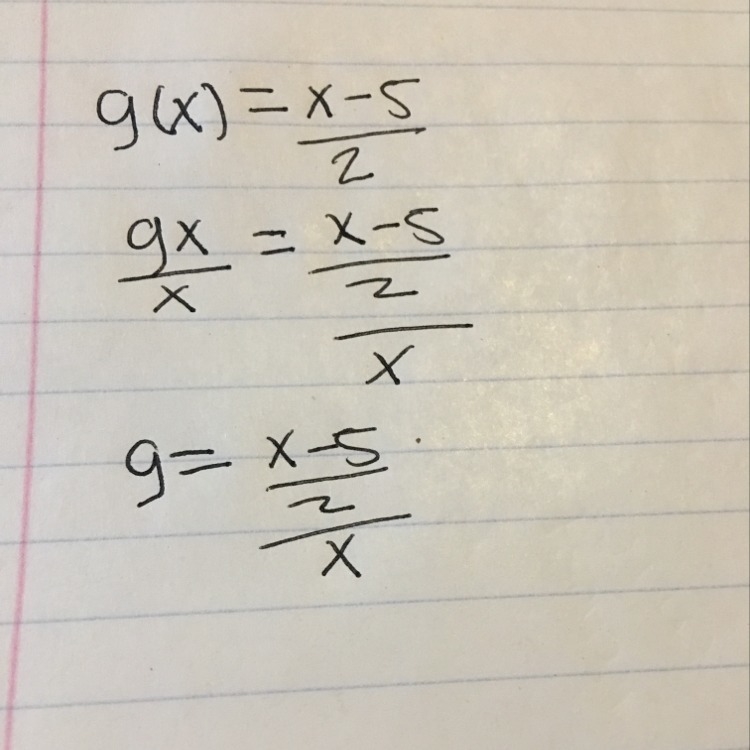 g(x) = x-5
2
gx = x-5
x 2
x
g = x-5
2
x